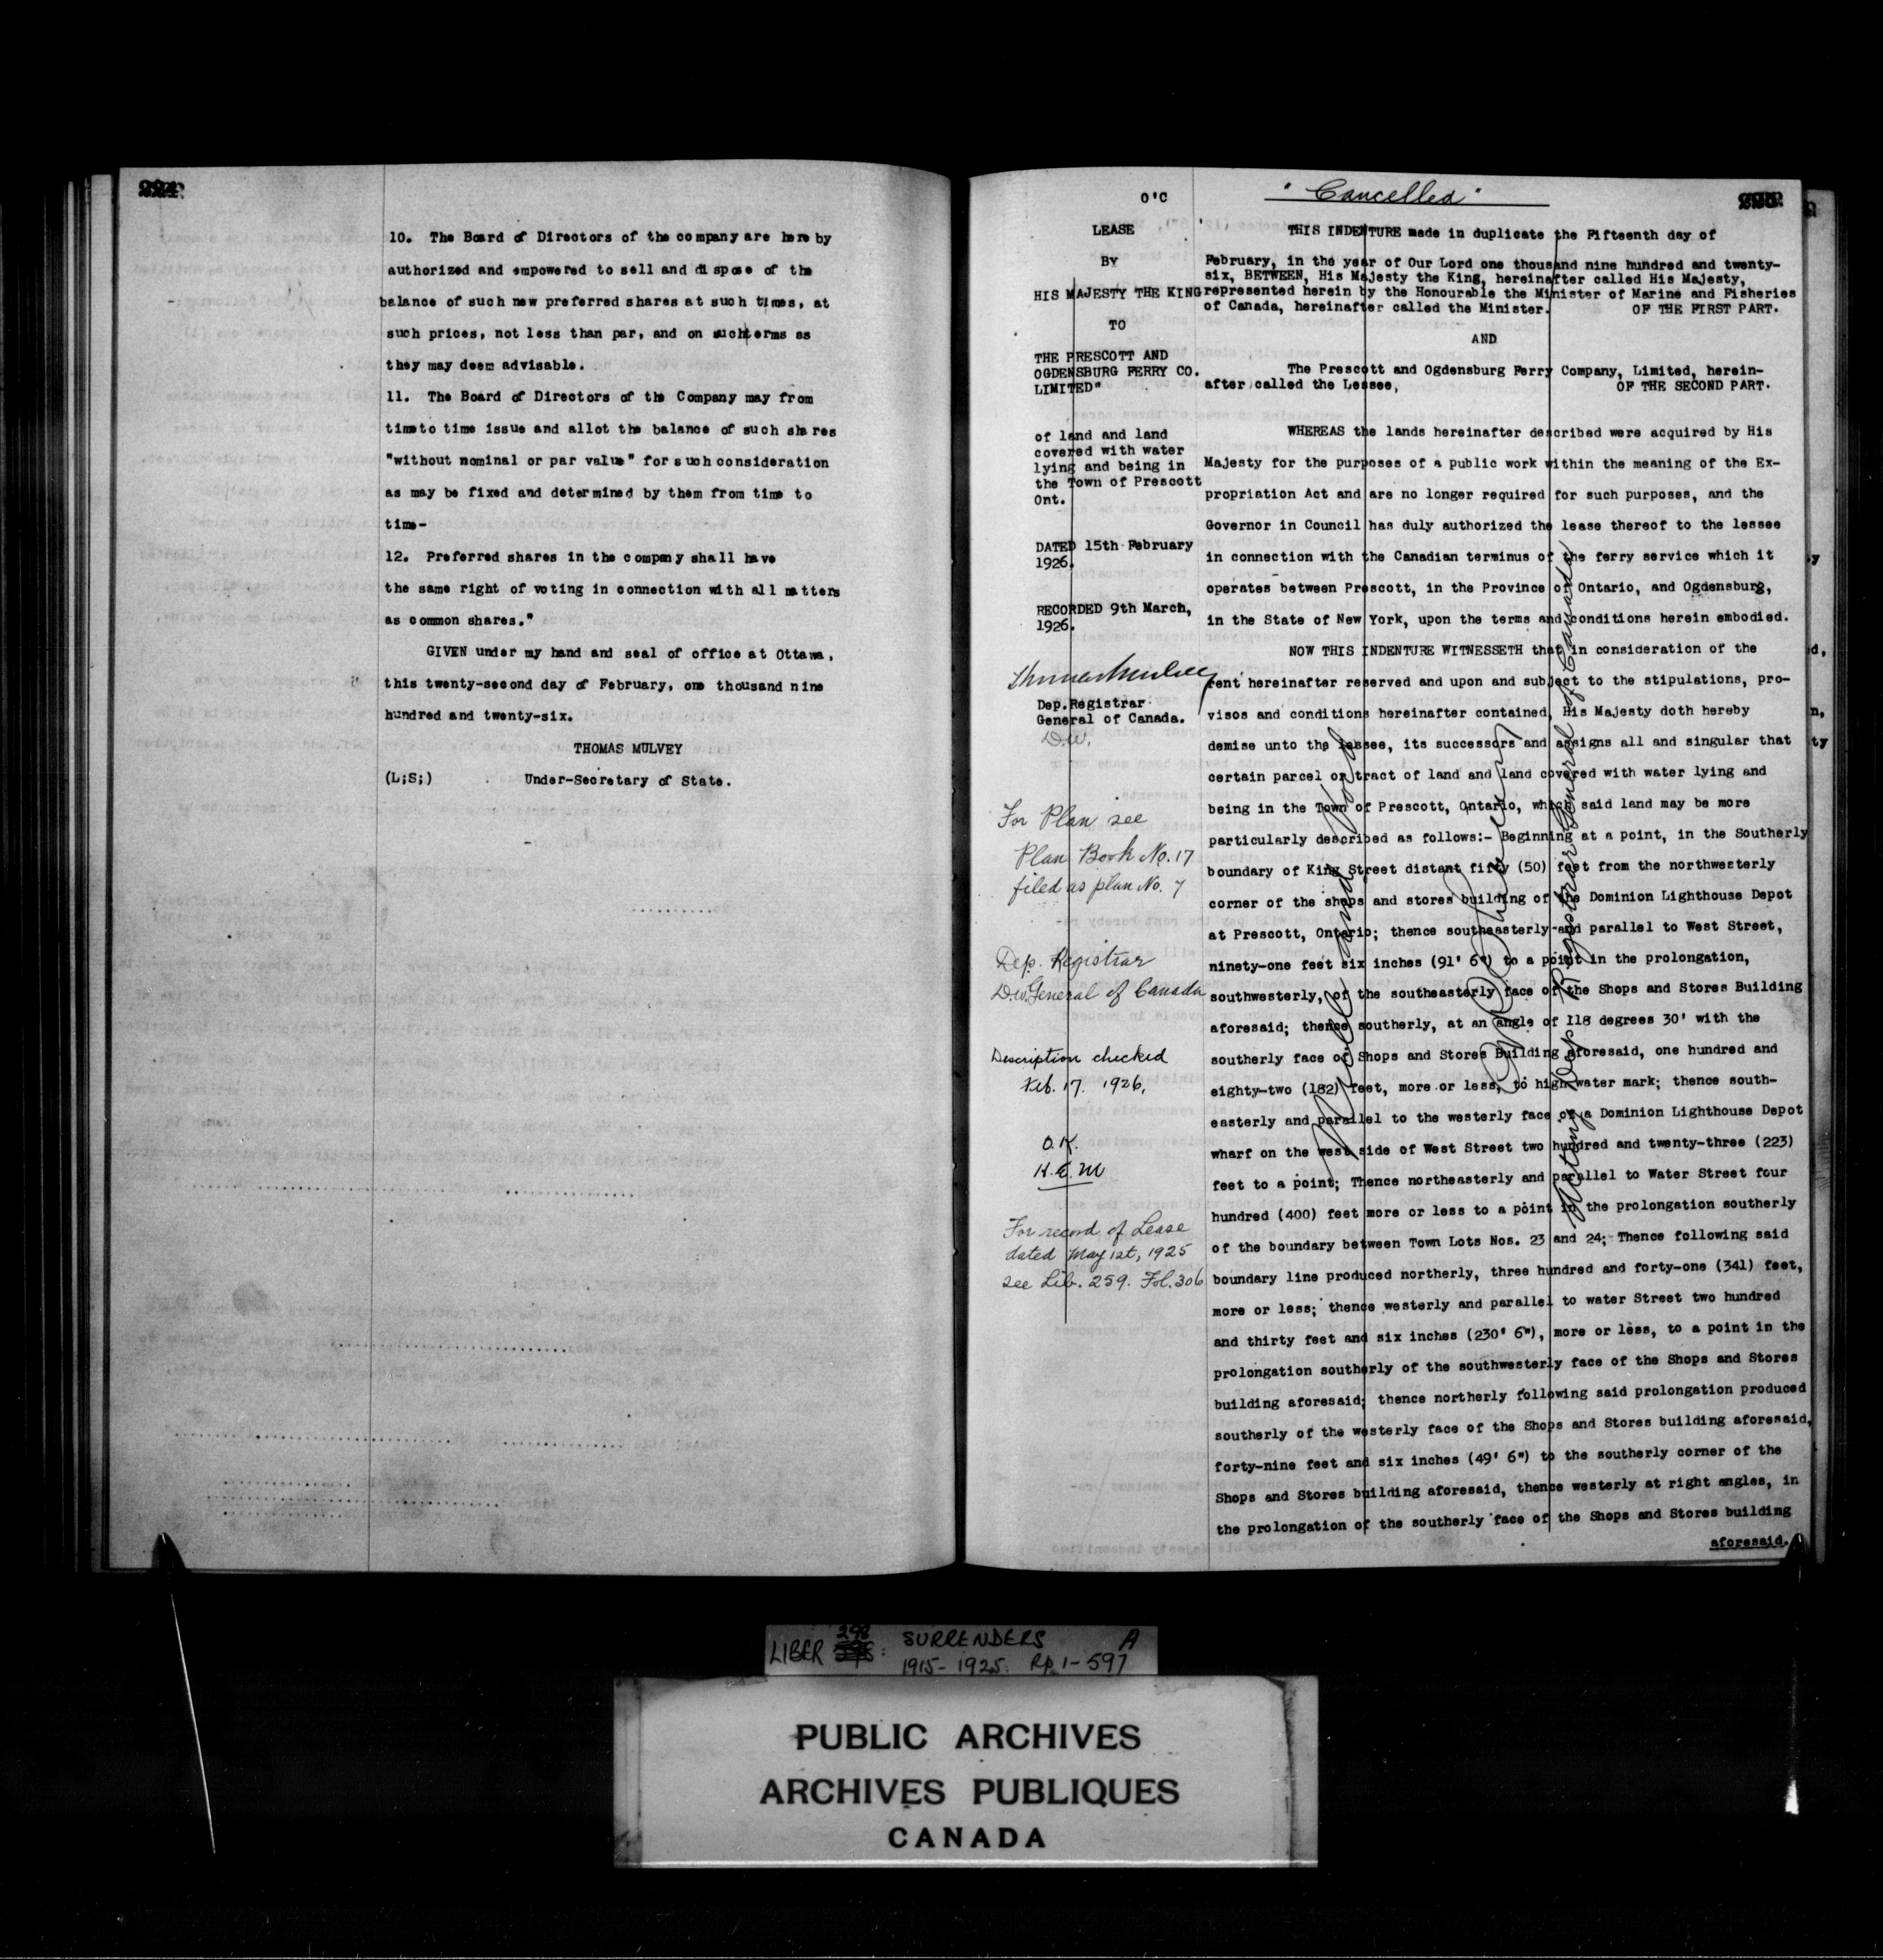 224
10. The Board of Directors of the company are here by
authorized and empowered to sell and dispose of the
balance of such new preferred shares at such times, at
such prices, not less than par, and on such terms as
they may deem advisable.
11. The Board of Directors of the Company may from
time to time issue and allot the balance of such shares
"without nominal or par value" for such consideration
as may be fixed and determined by them from time to
time-
12. Preferred shares in the company shall have
the same right of voting in connection with all matters
as common shares."
GIVEN under my hand and seal of office at Ottawa,
this twenty-second day of February, one thousand nine
hundred and twenty-six.
THOMAS MULVEY
(L;S;) Under-Secretary of State.
O'C
"Cancelled"
225
LEASE
BY
HIS MAJESTY THE KING
TO
THE PRESCOTT AND
OGDENSBURG FERRY CO.
LIMITED"
of land and land
covered with water
lying and being in
the Town of Prescott
Ont.
DATED 15th February
1926.
RECORDED 9th March,
1926.
Thomas Mulvey
Dep.Registrar
General of Canada.
D.W.
For Plan see
Plan Book No. 17
filed as plan No. 7
Dep. Registrar
D.W. General of Canada
Description checked
Feb. 17. 1926.
O.K.
H.E.M
For record of Lease
dated May 1st, 1925
see Lib. 259. Fol. 306
THIS INDENTURE made in duplicate the Fifteenth day of
February, in the year of Our Lord one thousand nine hundred and twenty-
six, BETWEEN, His Majesty the King, hereinafter called His Majesty,
represented herein by the Honourable the Minister of Marine and Fisheries
of Canada, hereinafter called the Minister. OF THE FIRST PART.
AND
The Prescott and Ogdensburg Ferry Company, Limited, herein-
after called the Lessee, OF THE SECOND PART.
WHEREAS the lands hereinafter described were acquired by His
Majesty for the purposes of a public work within the meaning of the Ex-
propriation Act and are no longer required for such purposes, and the
Governor in Council has duly authorized the lease thereof to the lessee
in connection with the Canadian terminus of the ferry service which it
operates between Prescott, in the Province of Ontario, and Ogdensburg,
in the State of New York, upon the terms and conditions herein embodied.
NOW THIS INDENTURE WITNESSETH that in consideration of the
rent hereinafter reserved and upon and subject to the stipulations, pro-
visos and conditions hereinafter contained, His Majesty doth hereby
demise unto the lessee, its successors and assigns all and singular that
certain parcel or tract of land and land covered with water lying and
being in the Town of Prescott, Ontario, which said land may be more
particularly described as follows:- Beginning at a point, in the Southerly
boundary of King Street distant fifty (50) feet from the northwesterly
corner of the shops and stores building of the Dominion Lighthouse Depot
at Prescott, Ontario; thence southeasterly and parallel to West Street,
ninety-one feet six inches (91' 6") to a point in the prolongation,
southwesterly, of the southeasterly face of the Shops and Stores Building
aforesaid; thence southerly, at an angle of 118 degrees 30' with the
southerly face of Shops and Stores Building aforesaid, one hundred and
eighty-two (182) feet, more or less, to high water mark; thence south-
easterly and parallel to the westerly face of a Dominion Lighthouse Depot
wharf on the west side of West Street two hundred and twenty-three (223)
feet to a point; Thence northeasterly and parallel to Water Street four
hundred (400) feet more or less to a point in the prolongation southerly
of the boundary between Town Lots Nos. 23 and 24; Thence following said
boundary line produced northerly, three hundred and forty-one (341) feet,
more or less; thence westerly and parallel to water Street two hundred
and thirty feet and six inches (230' 6"), more or less, to a point in the
prolongation southerly of the southwesterly face of the Shops and Stores
building aforesaid; thence northerly following said prolongation produced
southerly of the westerly face of the Shops and Stores building aforesaid,
forty-nine feet and six inches (49' 6") to the southerly corner of the
Shops and Stores building aforesaid, thence westerly at right angles, in
the prolongation of the southerly face of the Shops and Stores building
aforesaid.
Acting Dep. Registrar General of Canada
LIBER 298 : SURRENDERS A
1915-1925. Pp 1-597
PUBLIC ARCHIVES
ARCHIVES PUBLIQUES
CANADA